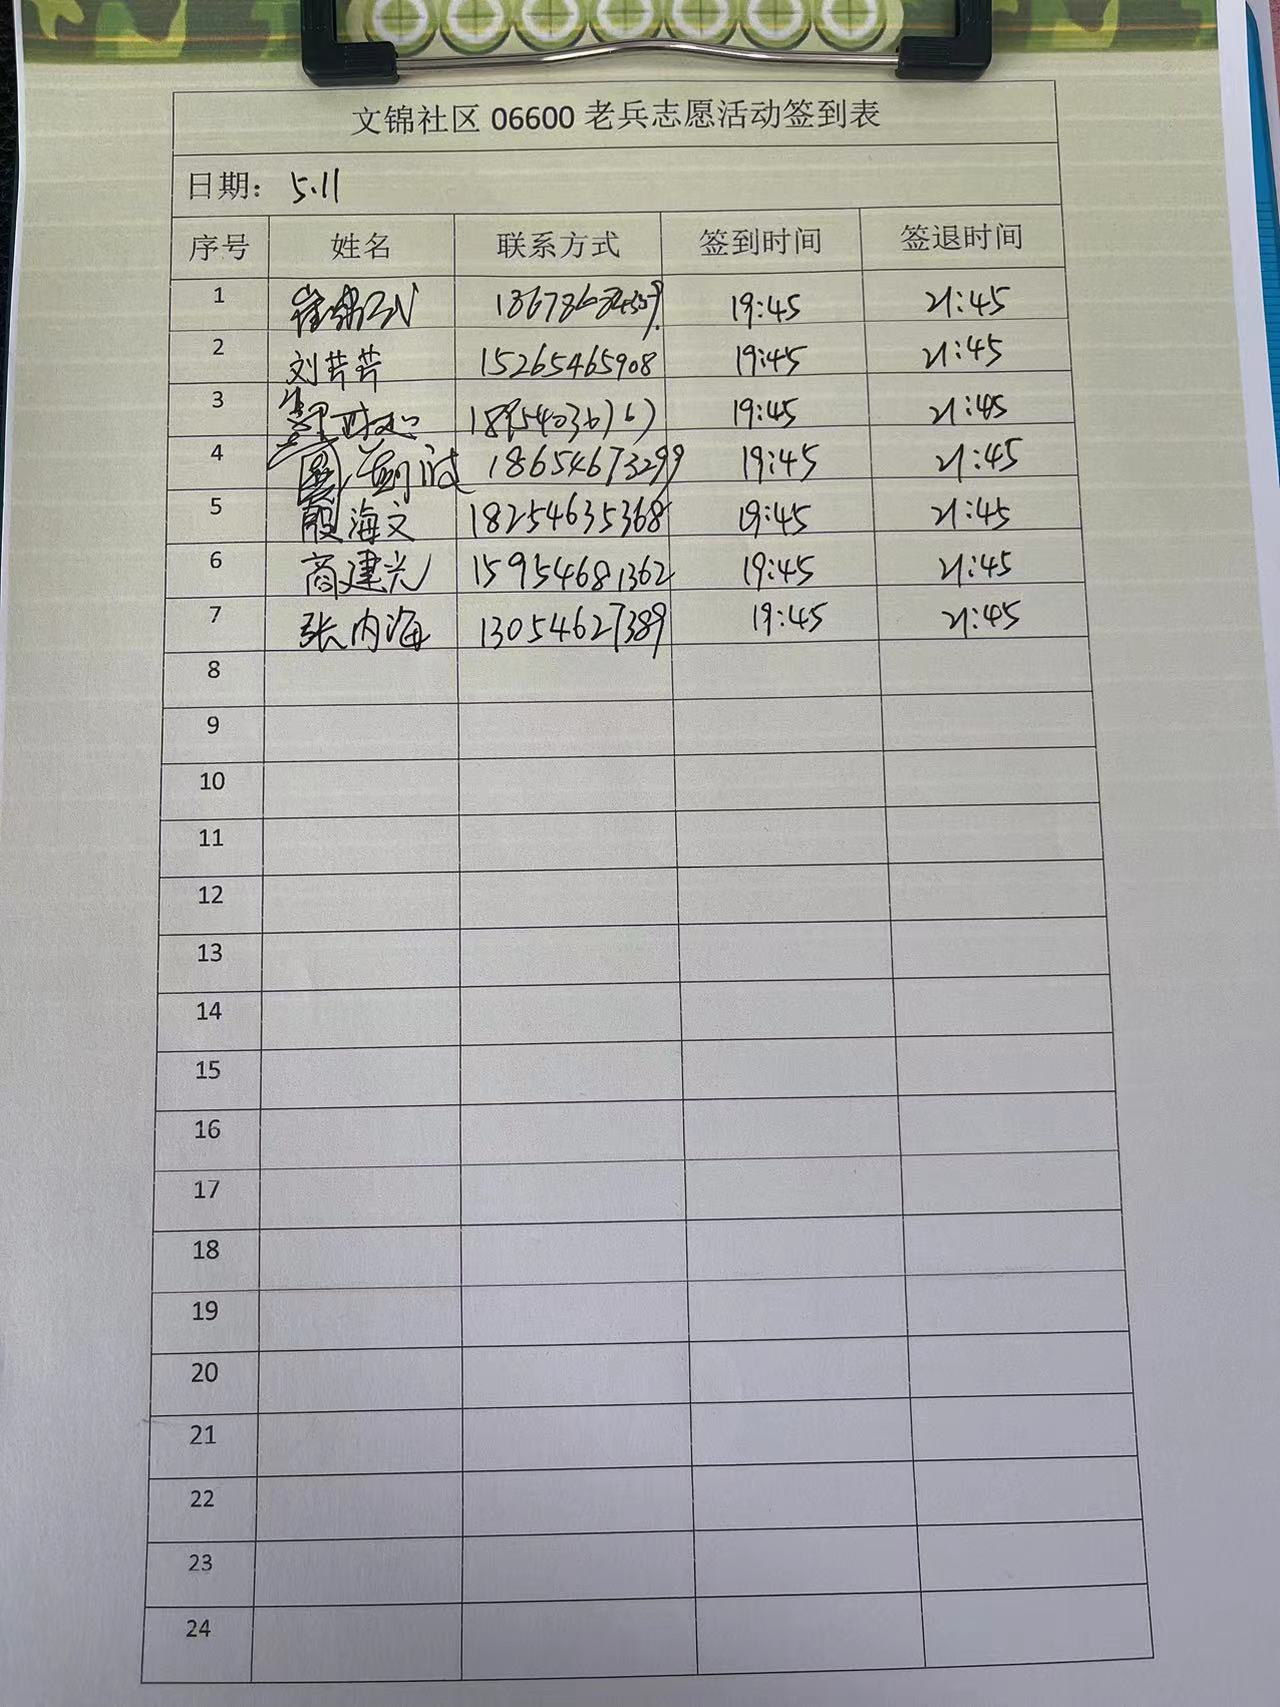 文锦社区 06600 老兵志愿活动签到表
日期： 5.11
序号 姓名 联系方式 签到时间 签退时间
1 19:45 21:45
2 刘芹芹 15265465908 19:45 21:45
3 19:45 21:45
4 18654673299 19:45 21:45
5 殷海文 18254635368 19:45 21:45
6 商建光 15954681362 19:45 21:45
7 张内海 13054627389 19:45 21:45
8
9
10
11
12
13
14
15
16
17
18
19
20
21
22
23
24